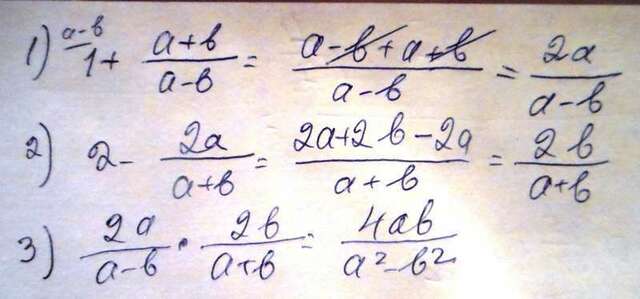 1) a-b 1+ a+b/a-b = a-b+a+b/a-b = 2a/a-b
2) 2- 2a/a+b = 2a+2b-2a/a+b = 2b/a+b
3) 2a/a-b · 2b/a+b = 4ab/a²-b²